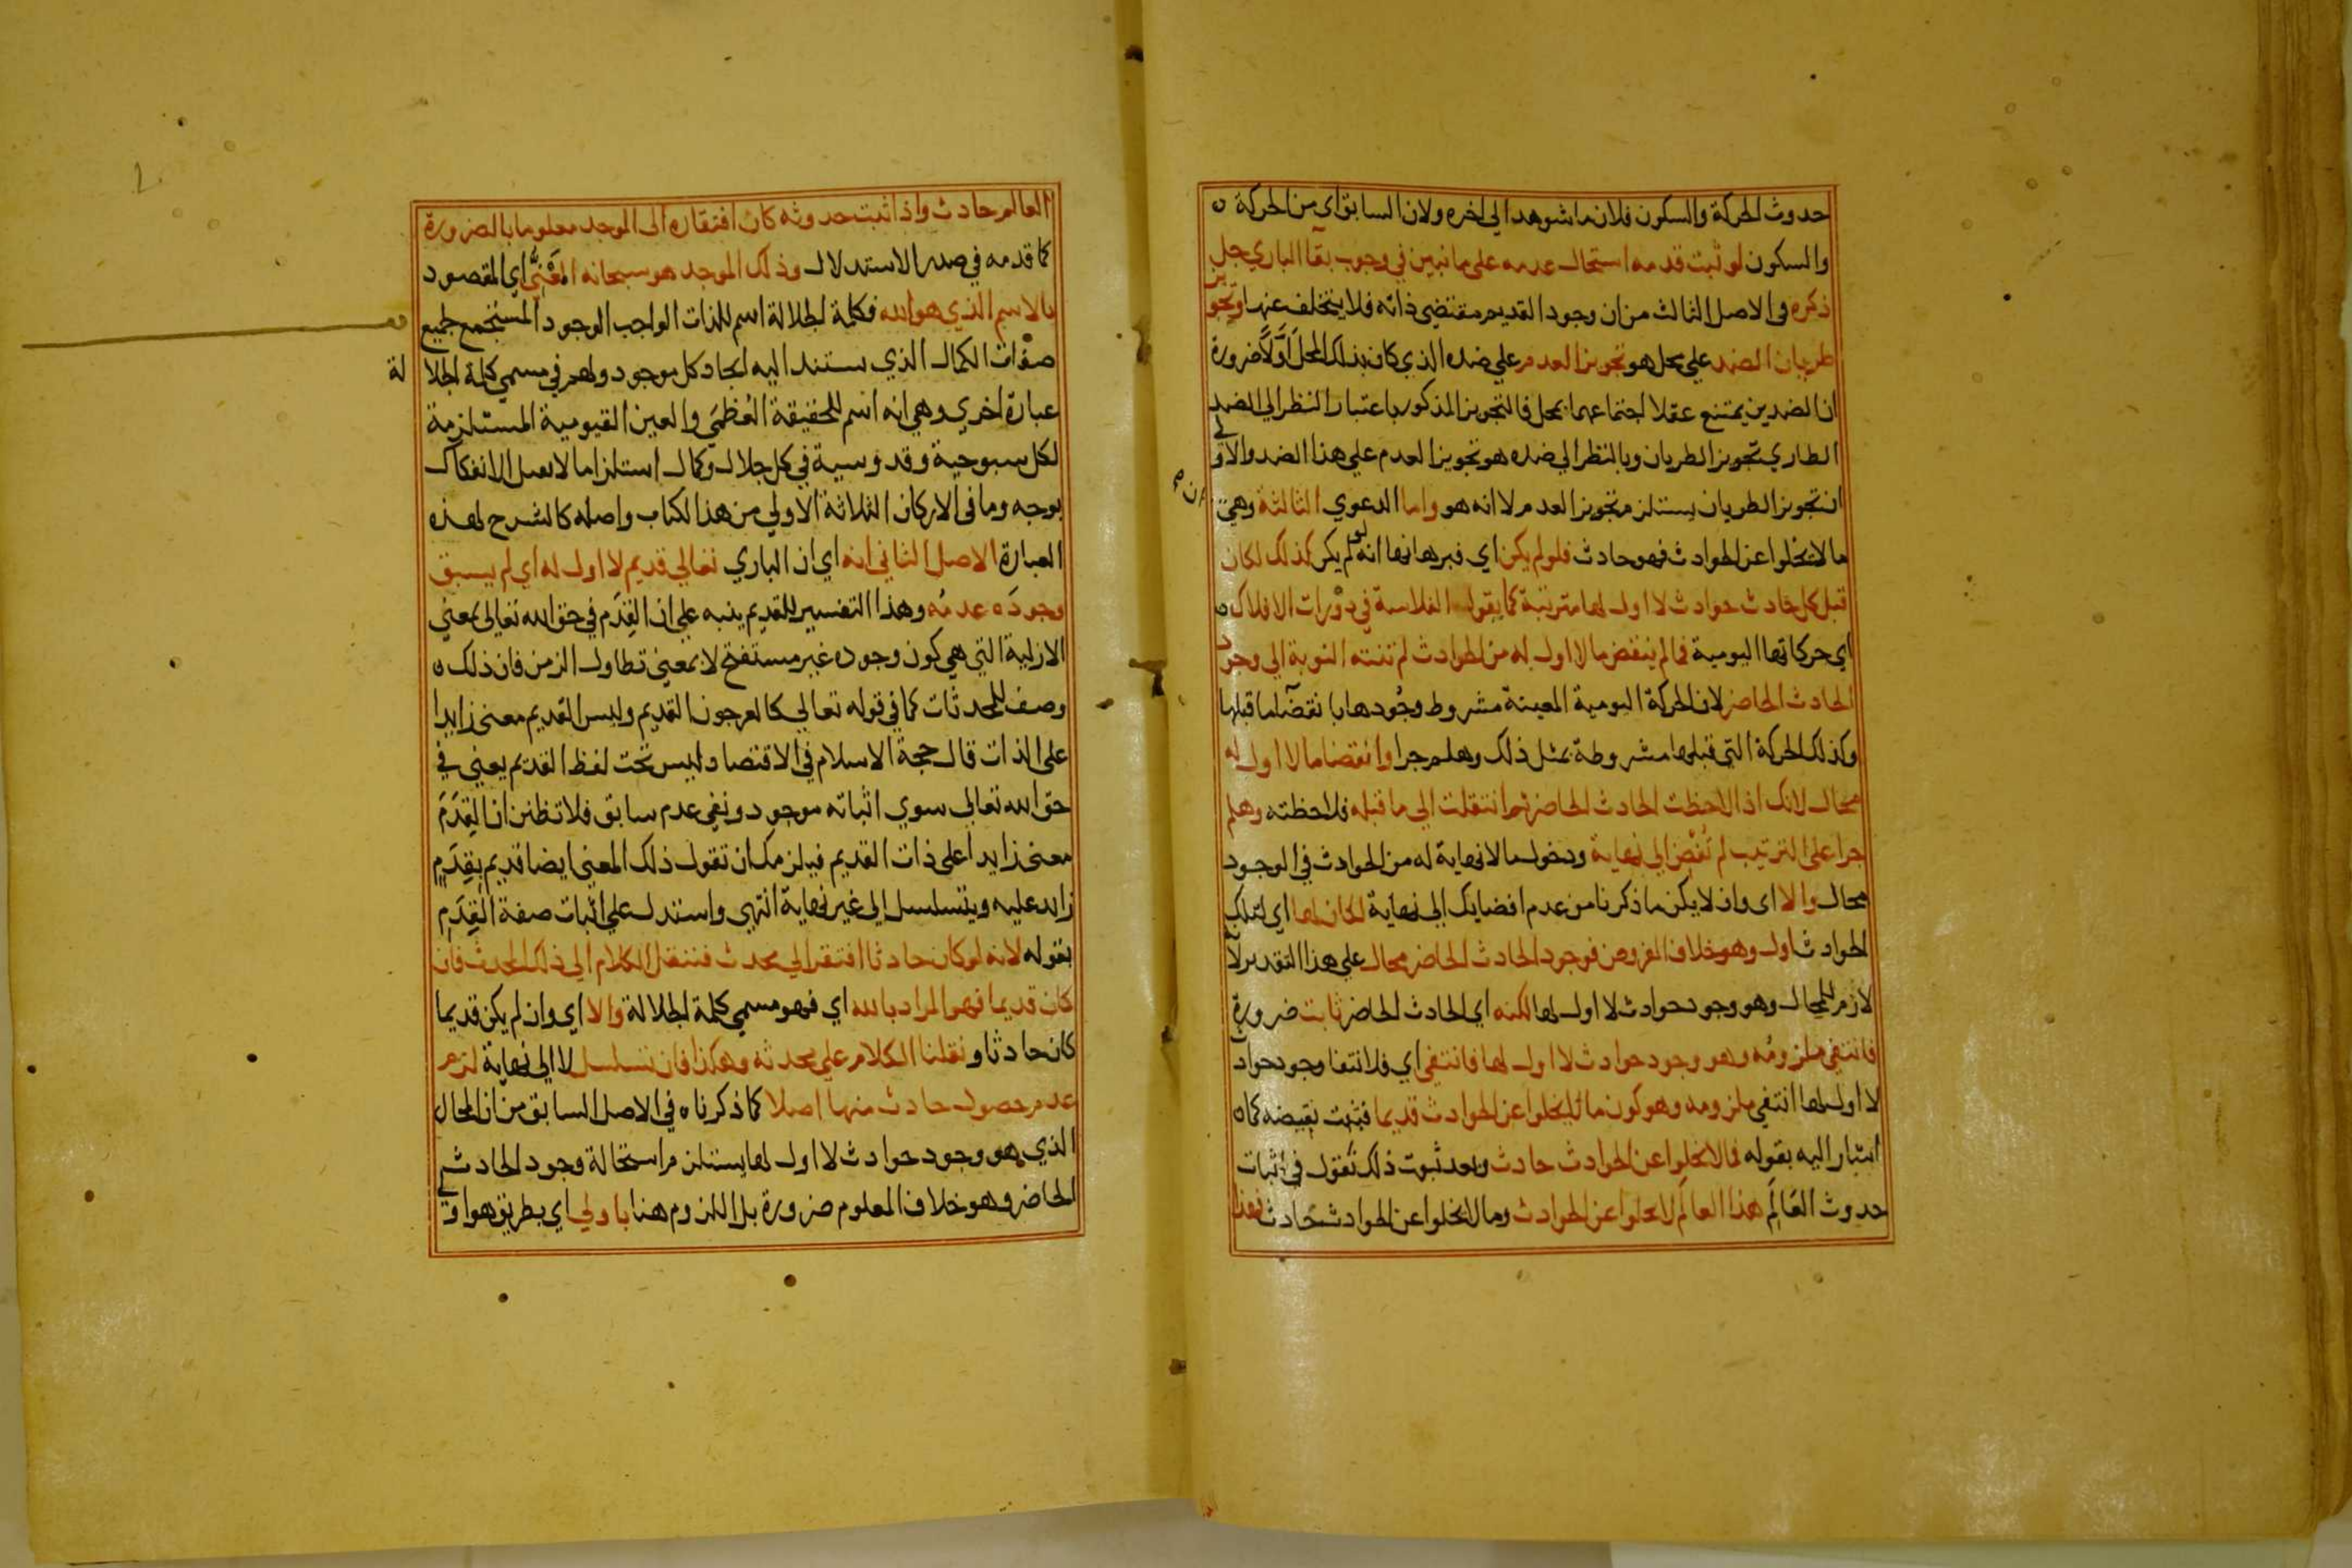 حدوث الحركة والسكون فلان ما شوهد الي اخره ولان السابق اي من الحركة
والسكون لو ثبت قدمه استحال عدمه على ما نبين في وجوب بقآ الباري جل
ذكره في الاصل الثالث من ان وجود القديم مقتضي ذاته فلا يتخلف عنها وتجويز
طريان الضد علي محل هو تجويز العدم علي ضده الذي كان بذلك المحل اوّلاً ضرورة
ان الضدين يمتنع عقلا اجتماعهما بمحل فالتجويز المذكور باعتبار النظر الي الضد
الطاري تجويز الطريان وبالنظر الي ضده هو تجويز العدم علي هذا الضد والاولي
ان تجويز الطريان يستلزم تجويز العدم لا انه هو واما الدعوي الثالثة وهي
ما لا يخلوا عن الحوادث فهو حادث فلو لم يكن اي فبرهانها انه لو لم يكن كذلك لكان
قبل كل حادث حوادث لا اول لها مترتبة كما يقول الفلاسفة في دورات الافلاك
اي حركاتها اليومية فما لم ينقض ما لا اول له من الحوادث لم تنته النوبة الي وجود
الحادث الحاضر لان الحركة اليومية المعينة مشروط وجُودها بانقضآ ما قبلها
وكذلك الحركة التي قبلها مشروطة بمثل ذلك وهلم جرا وانقضا ما لا اول له
محال لانك اذا لاحظت الحادث الحاضر ثم انتقلت الي ما قبله فلاحظته وهلم
جرا على الترتيب لم تُفْض الي نهاية ودخول ما لا نهاية له من الحوادث في الوجود
محال والا اي وان لا يكن ما ذكرنا من عدم افضايك الي نهاية لكان لها اي لتلك
الحوادث اول وهو خلاف المفروض فوجود الحادث الحاضر محال علي هذا التقدير لانه
لازم للمحال وهو وجود حوادث لا اول لها لكنه اي الحادث الحاضر ثابت ضرورة
فانتفي ملزومُه وهو وجود حوادث لا اول لها فانتفي اي فلانتفا وجود حوادث
لا اول لها انتفي ملزومه وهو كون ما لا يخلوا عن الحوادث قديما فثبت نقيضه كما
اشار اليه بقوله فما لا يخلوا عن الحوادث حادث وبعد ثبوت ذلك نقول في اثبات
حدوث العَالَم هذا العالَم لا يخلوا عن الحوادث وما لا يخلوا عن الحوادث حَادث فهذا
العالم حادث واذا ثبت حدوثه كان افتقاره الى الموجد معلوما بالضرورة
كما قدمه في صدر الاستدلال وذلك الموجد هو سبحانه المَعْنِيُّ اي المقصود
بالاسم الذي هو الله فكلمة الجلالة اسم للذات الواجب الوجود المستجمع لجميع
صفات الكمال الذي يستند اليه ايجاد كل موجود ولهم في مسمي كلمة الجلالة
عبارة اخري وهي انه اسم للحقيقة العُظمَي والعين القيومية المستلزمة
لكل سبوحية وقدوسية في كل جلال وكمال استلزاما لا يقبل الانفكاك
بوجه وما في الاركان الثلاثة الاولي من هذا الكتاب واصله كالشرح لهذه
العبارة الاصل الثاني انه اي ان الباري تعالي قديم لا اول له اي لم يسبق
وجودَه عدمُه وهذا التفسير للقديم ينبه علي ان القِدَم في حق الله تعالى بمعني
الازلية التي هي كون وجوده غير مستفتح لا بمعني تطاول الزمن فان ذلك
وصف للمحدثات كما في قوله تعالي كالعرجون القديم وليس القديم معنى زايدا
على الذات قال حجة الاسلام في الاقتصاد ليس تحت لفظ القديم يعني في
حق الله تعالي سوي اثباته موجود ونفي عدم سابق فلا تظنن ان القِدَمَ
معنى زايدا على ذات القديم فيلزمك ان تقول ذلك المعنى ايضا قديم بقِدَمٍ
زايد عليه ويتسلسل الي غير نهاية انتهي واستدل علي اثبات صفة القِدَم
بقوله لانه لو كان حادثا افتقر الي محدث فننتقل الكلام الي ذلك المحدث فان
كان قديما فهو المراد بالله اي فهو مسمي كلمة الجلالة والا اي وان لم يكن قديما
كان حادثا ونقلنا الكلام علي محدثه وهكذا فان تسلسل لا الي نهاية لزم
عدم حصول حادث منها اصلا كما ذكرناه في الاصل السابق من ان المحال
الذي هو وجود حوادث لا اول لها يستلزم استحالة وجود الحادث
الحاضر وهو خلاف المعلوم ضرورة بل اللزوم هنا باولي اي بطريق هو اولي